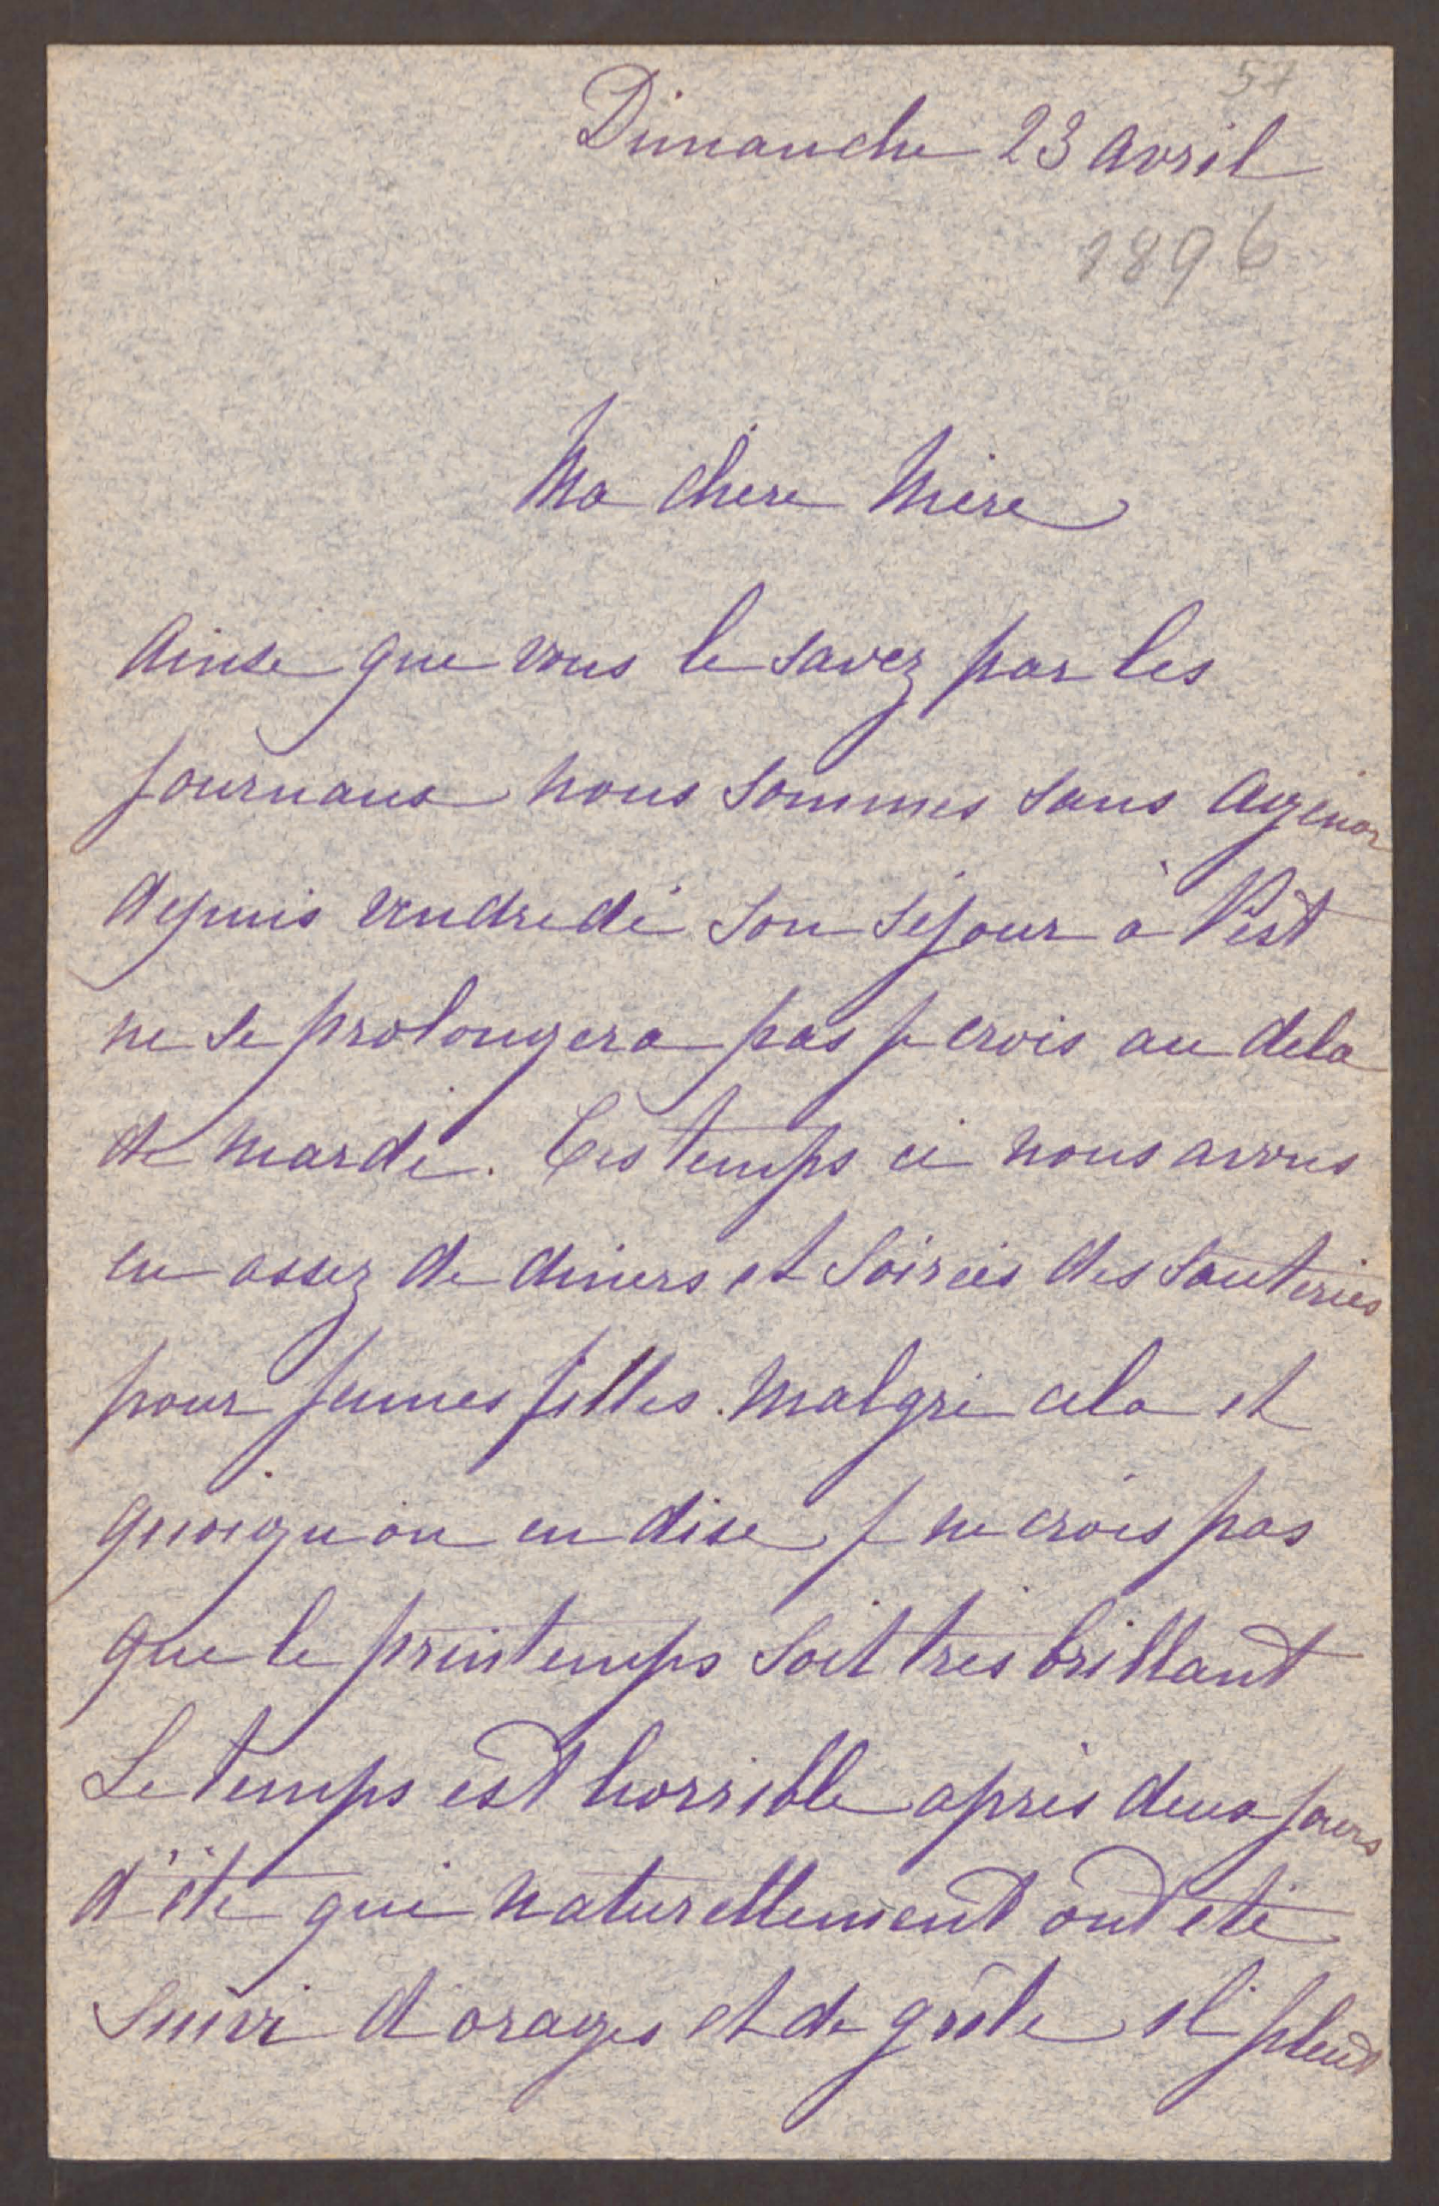 57
Dimanche 23 Avril
1896
Ma chere Mère
Ainsi que vous le savez par les
journaux nous sommes sans Agénor
depuis vendredi son séjour à Pest
ne se prolongera pas je crois au dela
de mardi. Ces temps ci nous avons
eu assez de diners et soirées des sauteries
pour jeunes filles. Malgré cela et
quoiqu'on en dise je ne crois pas
que le printemps soit tres brillant
Le temps est horrible après deux jours
d'été qui naturellement ont eté
suivi d'orages et de grêle il pleut